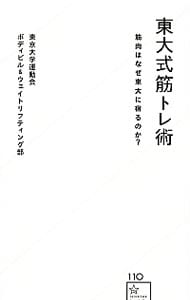 東大式筋トレ術
筋肉はなぜ東大に宿るのか？
東京大学運動会
ボディビル&ウェイトリフティング部
110